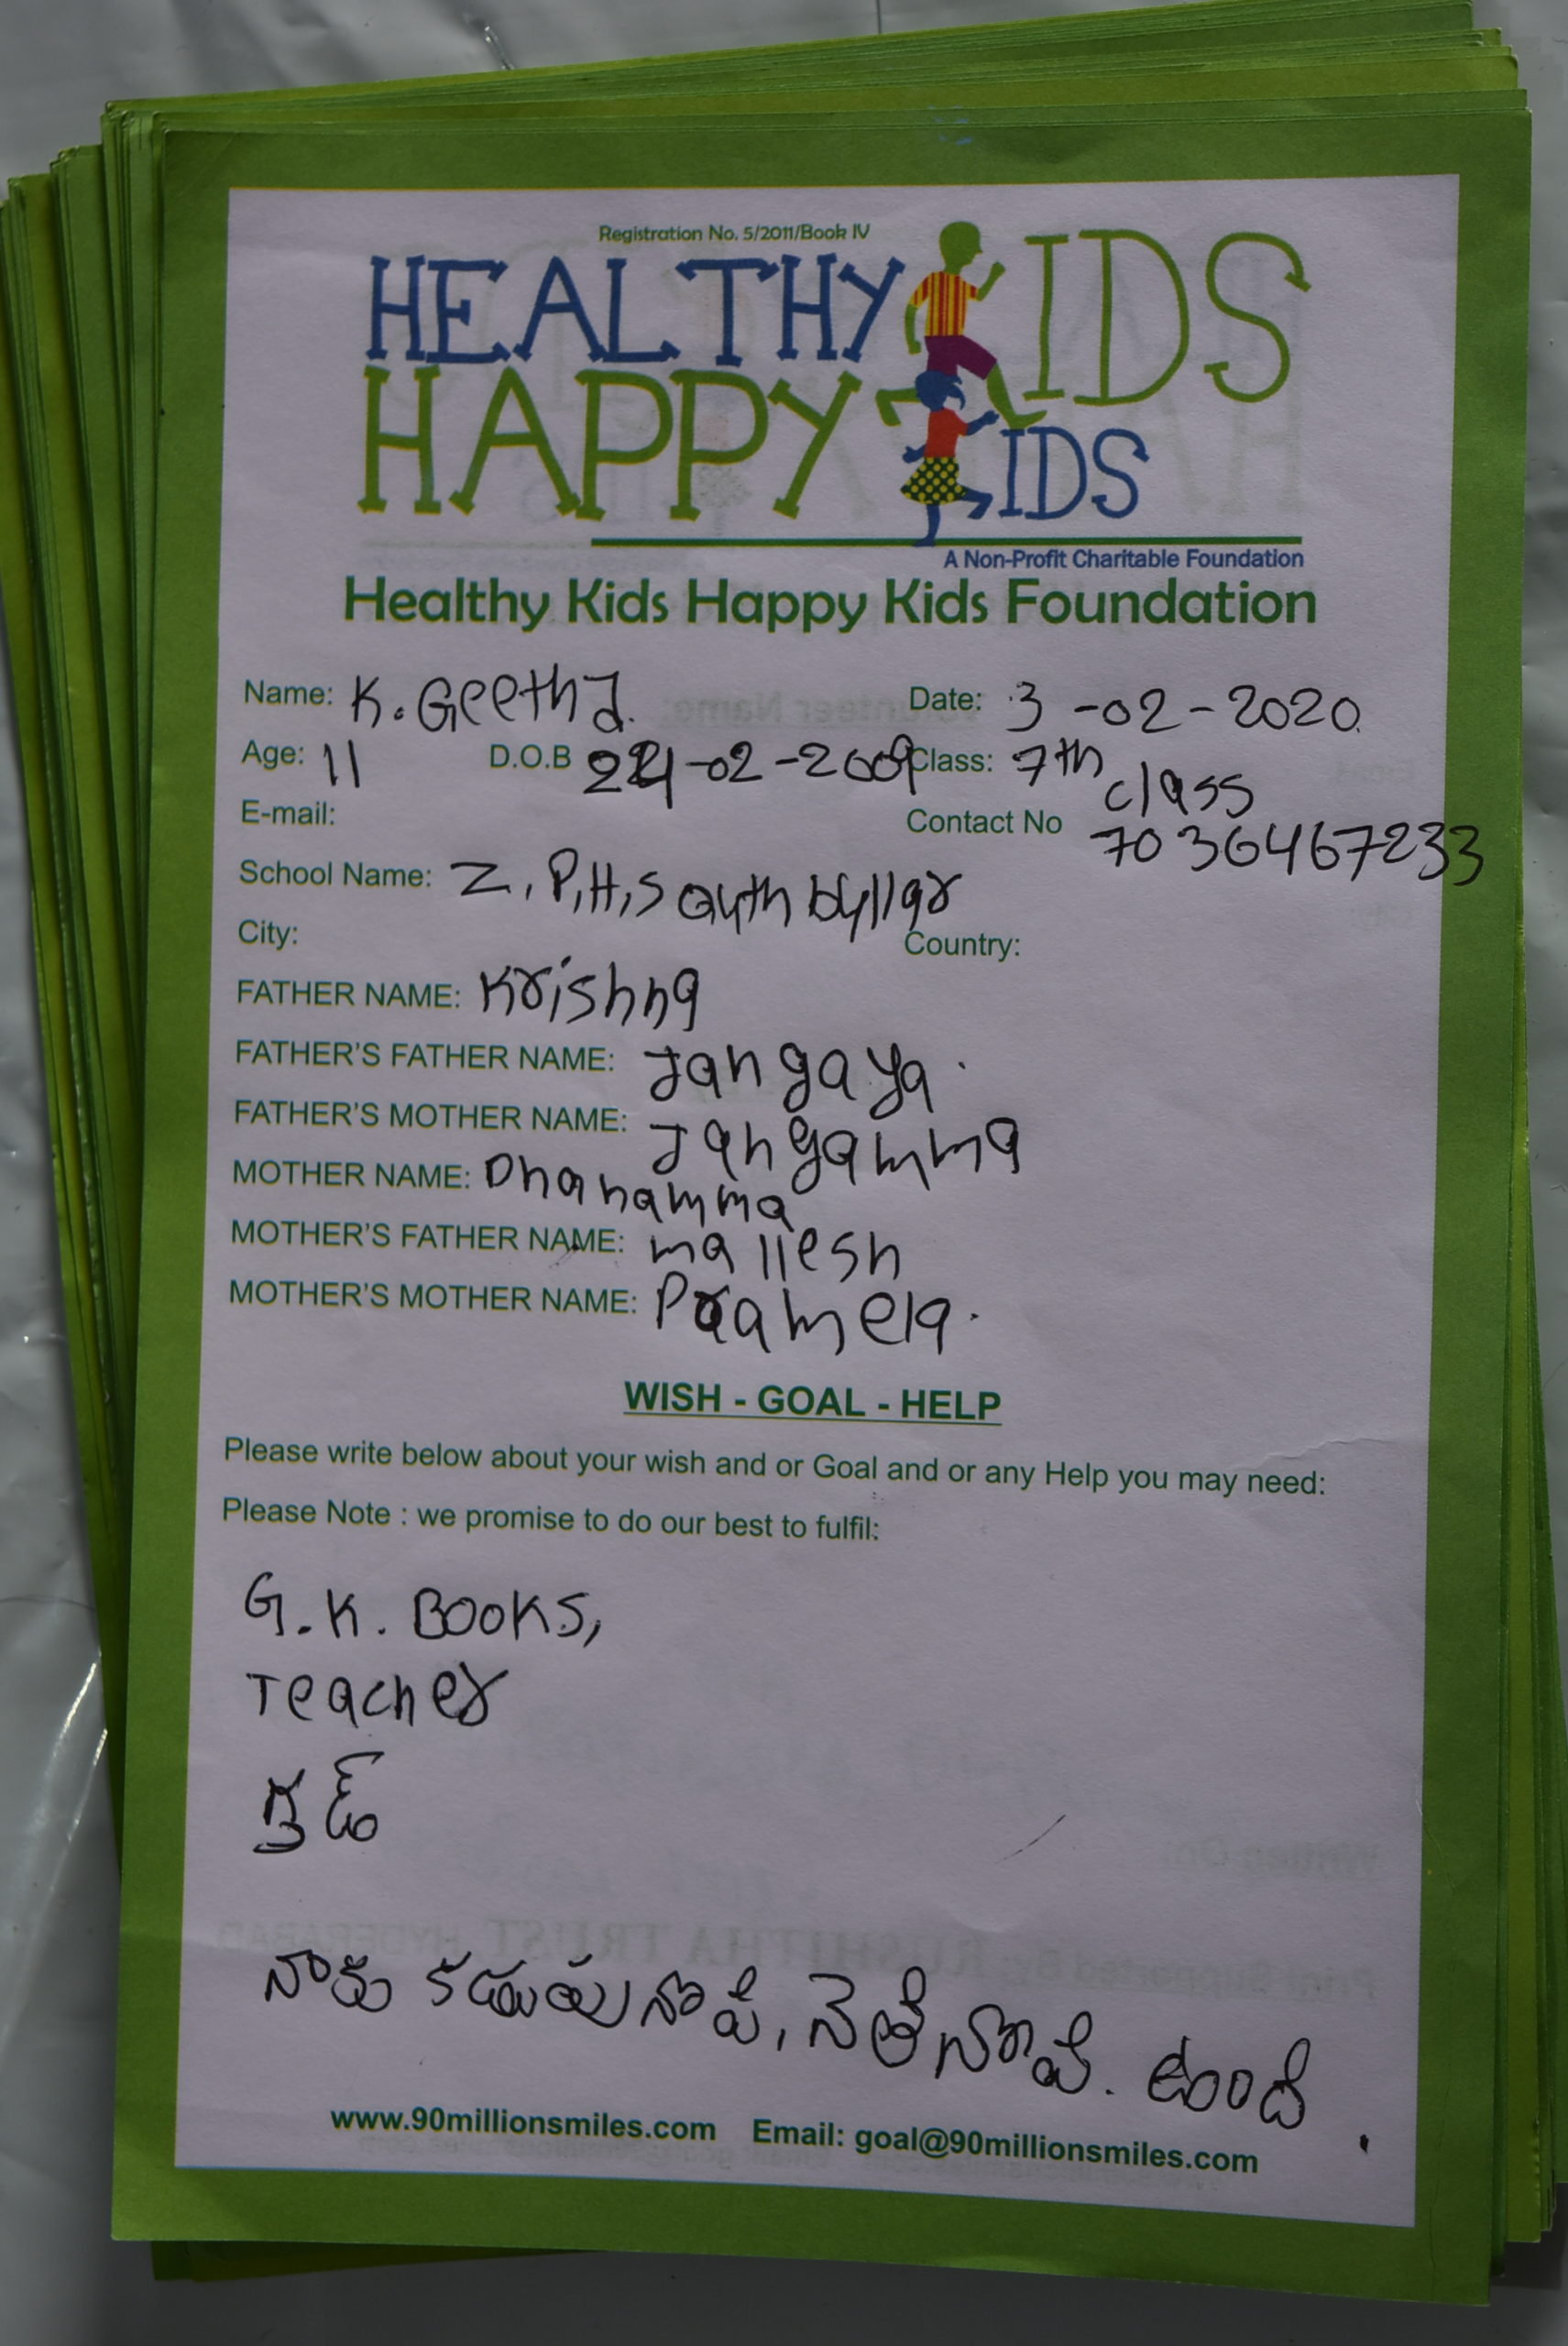 Registration No. 5/2011/Book IV
HEALTHY KIDS
HAPPY KIDS
A Non-Profit Charitable Foundation
Healthy Kids Happy Kids Foundation
Name: K. Geetha. Date: 3-02-2020.
Age: 11 D.O.B -02-2009 Class: 7th class
E-mail: Contact No 7036467233
School Name: Z, P, H, S
City: Country:
FATHER NAME: Krishna
FATHER'S FATHER NAME: Jangaya.
FATHER'S MOTHER NAME: Jangamma
MOTHER NAME: Dhanamma
MOTHER'S FATHER NAME: mallesh
MOTHER'S MOTHER NAME: Pramela.
WISH - GOAL - HELP
Please write below about your wish and or Goal and or any Help you may need:
Please Note : we promise to do our best to fulfil:
G.K. BOOKS,
Teacher
నాకు కడుపు నొపి, ఉంది.
www.90millionsmiles.com Email: goal@90millionsmiles.com